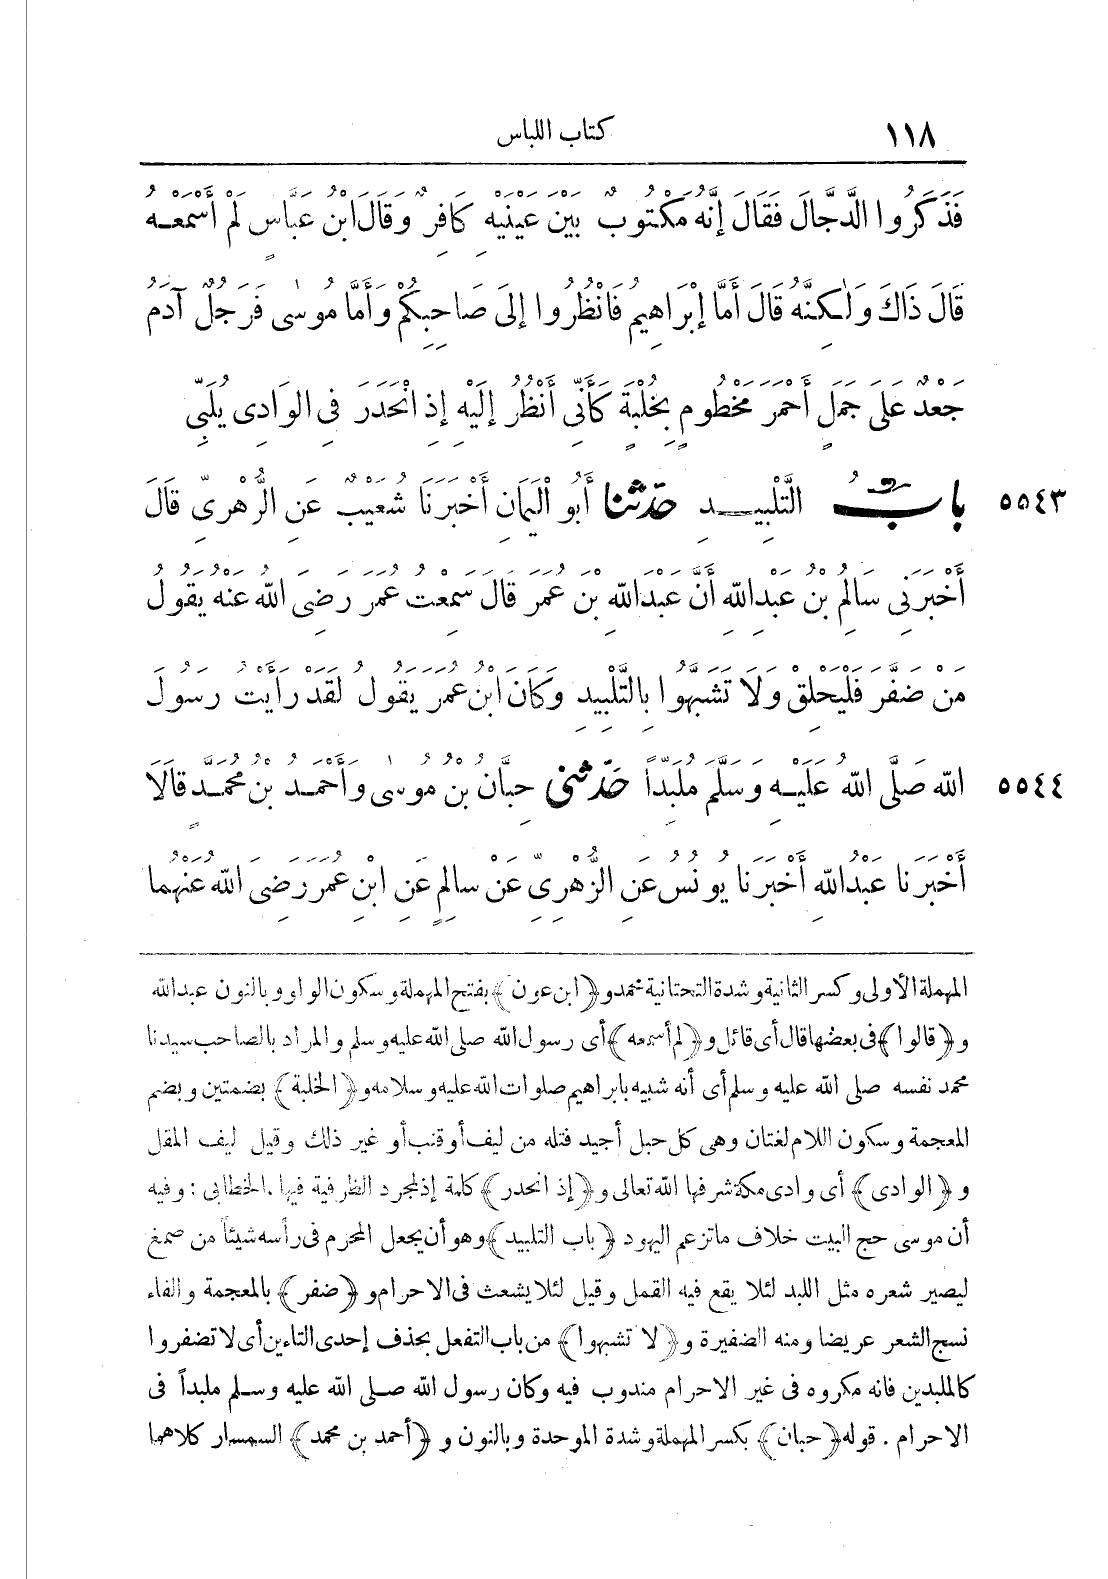 ١١٨ كتاب اللباس
فَذَكَرُوا الدَّجَّالَ فَقَالَ إِنَّهُ مَكْتُوبٌ بَيْنَ عَيْنَيْهِ كَافِرٌ وَقَالَ ابْنُ عَبَّاسٍ لَمْ أَسْمَعْهُ
قَالَ ذَاكَ وَلٰكِنَّهُ قَالَ أَمَّا إِبْرَاهِيمُ فَانْظُرُوا إِلَى صَاحِبِكُمْ وَأَمَّا مُوسٰى فَرَجُلٌ آدَمُ
جَعْدٌ عَلَى جَمَلٍ أَحْمَرَ مَخْطُومٍ بِخُلْبَةٍ كَأَنِّى أَنْظُرُ إِلَيْهِ إِذِ انْحَدَرَ فِى الوَادِى يُلَبِّى
٥٥٤٣ بَابُ التَّلْبِيدِ حَدَّثَنَا أَبُو الْيَمَانِ أَخْبَرَنَا شُعَيْبٌ عَنِ الزُّهْرِىِّ قَالَ
أَخْبَرَنِى سَالِمُ بْنُ عَبْدِ اللهِ أَنَّ عَبْدَ اللهِ بْنَ عُمَرَ قَالَ سَمِعْتُ عُمَرَ رَضِىَ اللهُ عَنْهُ يَقُولُ
مَنْ ضَفَّرَ فَلْيَحْلِقْ وَلَا تَشَبَّهُوا بِالتَّلْبِيدِ وَكَانَ ابْنُ عُمَرَ يَقُولُ لَقَدْ رَأَيْتُ رَسُولَ
٥٥٤٤ اللهِ صَلَّى اللهُ عَلَيْهِ وَسَلَّمَ مُلَبِّدًا حَدَّثَنِى حِبَّانُ بْنُ مُوسٰى وَأَحْمَدُ بْنُ مُحَمَّدٍ قَالَا
أَخْبَرَنَا عَبْدُ اللهِ أَخْبَرَنَا يُونُسُ عَنِ الزُّهْرِىِّ عَنْ سَالِمٍ عَنِ ابْنِ عُمَرَ رَضِىَ اللهُ عَنْهُمَا
المهملة الأولى وكسر الثانية وشدة التحتانية محمد و﴿ابن عون﴾ بفتح المهملة وسكون الواو وبالنون عبد الله
و﴿قالوا﴾ فى بعضها قال أى قائل و﴿لم أسمعه﴾ أى رسول الله صلى الله عليه وسلم والمراد بالصاحب سيدنا
محمد نفسه صلى الله عليه وسلم أى أنه شبيه بابراهيم صلوات الله عليه وسلامه و﴿الخلبة﴾ بضمتين وبضم
المعجمة وسكون اللام لغتان وهى كل حبل أجيد فتله من ليف أو قنب أو غير ذلك وقيل ليف المقل
و﴿الوادى﴾ أى وادى مكة شرفها الله تعالى و﴿إذ انحدر﴾ كلمة إذ لمجرد الظرفية فيها. الخطابى: وفيه
أن موسى حج البيت خلاف ما تزعم اليهود ﴿باب التلبيد﴾ وهو أن يجعل المحرم فى رأسه شيئاً من صمغ
ليصير شعره مثل اللبد لئلا يقع فيه القمل وقيل لئلا يشعث فى الاحرام و﴿ضفر﴾ بالمعجمة والفاء
نسج الشعر عريضا ومنه الضفيرة و﴿لا تشبهوا﴾ من باب التفعل بحذف إحدى التاءين أى لا تضفروا
كالملبدين فانه مكروه فى غير الاحرام مندوب فيه وكان رسول الله صلى الله عليه وسلم ملبداً فى
الاحرام . قوله ﴿حبان﴾ بكسر المهملة وشدة الموحدة وبالنون و﴿أحمد بن محمد﴾ السمسار كلاهما